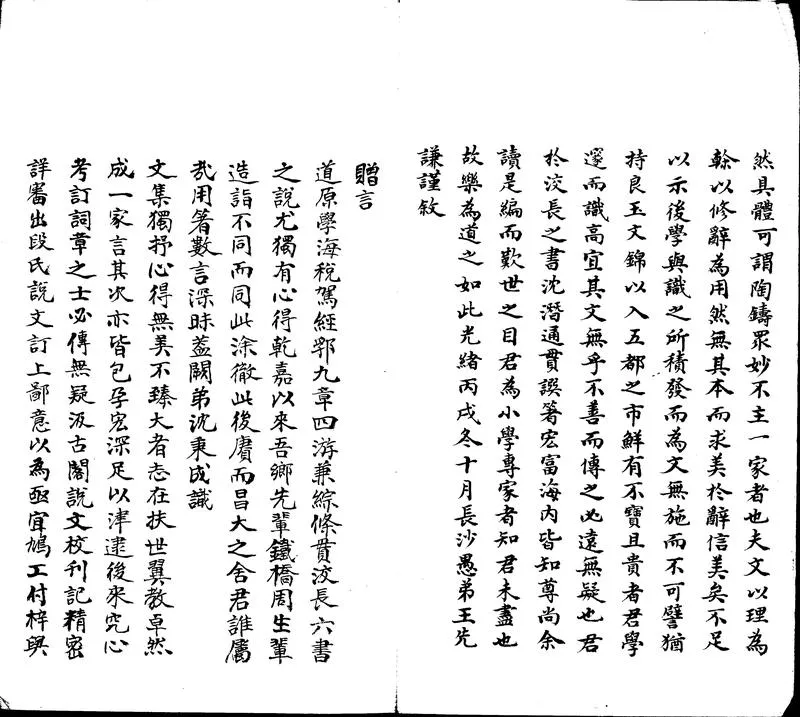 然具體可謂陶鑄眾妙不主一家者也夫文以理為
榦以修辭為用然無其本而求美於辭信美矣不足
以示後學與識之所積發而為文無施而不可譬猶
持良玉文錦以入五都之市鮮有不寶且貴者君學
邃而識高宜其文無乎不善而傳之必遠無疑也君
於洨長之書沈潛通貫譔箸宏富海內皆知尊尚余
讀是編而歎世之目君為小學專家者知君未盡也
故樂為道之如此光緒丙戌冬十月長沙愚弟王先
謙謹敘
贈言
道原學海稅駕經郛九章四游兼綜條貫洨長六書
之說尤獨有心得乾嘉以來吾鄉先輩鐵橋周生輩
造詣不同而同此涂徹此後賡而昌大之舍君誰屬
哉用箸數言深昧蓋闕弟沈秉成識
文集獨抒心得無美不臻大者志在扶世翼教卓然
成一家言其次亦皆包孕宏深足以津逮後來究心
考訂詞章之士必傳無疑汲古閣說文校刊記精密
詳審出段氏說文訂上鄙意以為亟宜鳩工付梓與